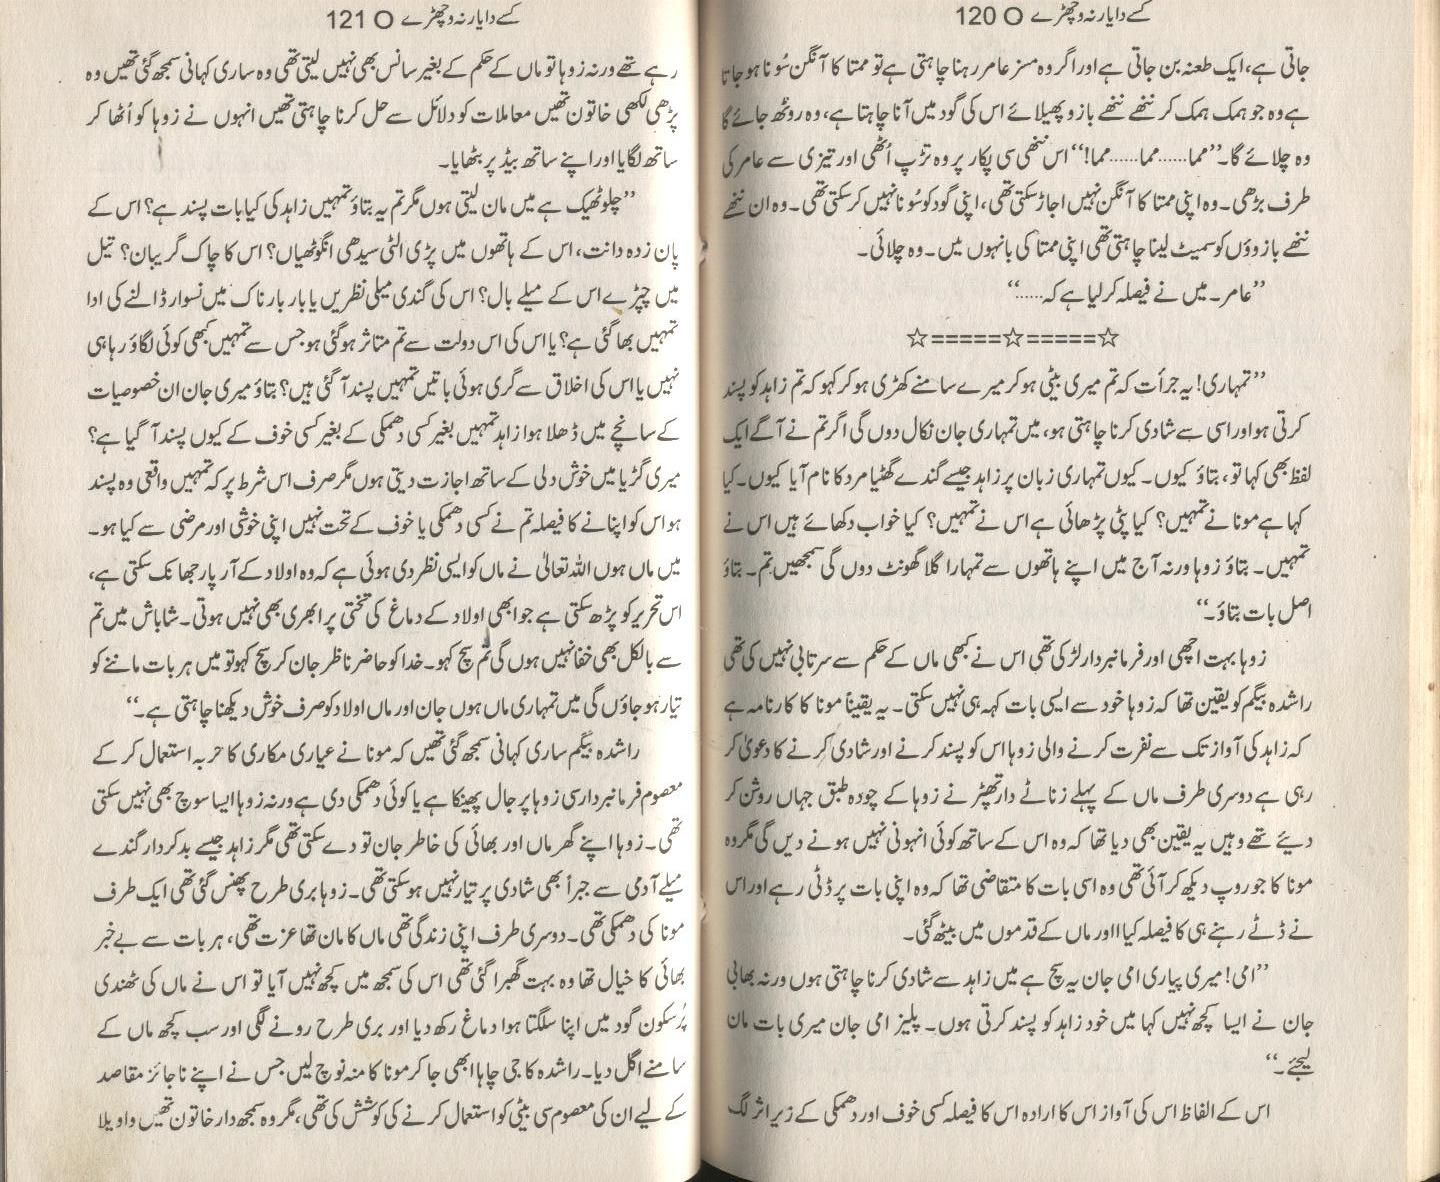 کسے دا یار نہ وچھڑے O 120
جاتی ہے، ایک طعنہ بن جاتی ہے اور اگر وہ مسز عامر رہنا چاہتی ہے تو ممتا کا آنگن سُونا ہو جاتا
ہے وہ جو ہمک ہمک کر ننھے ننھے بازو پھیلائے اس کی گود میں آنا چاہتا ہے، وہ روٹھ جائے گا
وہ چلائے گا۔ ”مما......مما......مما!“ اس ننھی سی پکار پر وہ تڑپ اُٹھی اور تیزی سے عامر کی
طرف بڑھی۔ وہ اپنی ممتا کا آنگن نہیں اجاڑ سکتی تھی، اپنی گود کو سُونا نہیں کر سکتی تھی۔ وہ ان ننھے
ننھے بازوؤں کو سمیٹ لینا چاہتی تھی اپنی ممتا کی بانہوں میں۔ وہ چلائی۔
”عامر۔ میں نے فیصلہ کر لیا ہے کہ......“
☆=====☆=====☆
”تمہاری! یہ جرأت کہ تم میری بیٹی ہو کر میرے سامنے کھڑی ہو کر کہو کہ تم زاہد کو پسند
کرتی ہو اور اسی سے شادی کرنا چاہتی ہو، میں تمہاری جان نکال دوں گی اگر تم نے آگے ایک
لفظ بھی کہا تو، بتاؤ کیوں۔ کیوں تمہاری زبان پر زاہد جیسے گندے گھٹیا مرد کا نام آیا کیوں۔ کیا
کہا ہے مونا نے تمہیں؟ کیا پٹی پڑھائی ہے اس نے تمہیں؟ کیا خواب دکھائے ہیں اس نے
تمہیں۔ بتاؤ زوہا ورنہ آج میں اپنے ہاتھوں سے تمہارا گلا گھونٹ دوں گی سمجھیں تم۔ بتاؤ
اصل بات بتاؤ۔“
زوہا بہت اچھی اور فرمانبردار لڑکی تھی اس نے کبھی ماں کے حکم سے سرتابی نہیں کی تھی
راشدہ بیگم کو یقین تھا کہ زوہا خود سے ایسی بات کہہ ہی نہیں سکتی۔ یہ یقیناً مونا کا کارنامہ ہے
کہ زاہد کی آواز تک سے نفرت کرنے والی زوہا اس کو پسند کرنے اور شادی کرنے کا دعویٰ کر
رہی ہے دوسری طرف ماں کے پہلے زناٹے دار تھپڑ نے زوہا کے چودہ طبق جہاں روشن کر
دیئے تھے وہیں یہ یقین بھی دیا تھا کہ وہ اس کے ساتھ کوئی انہونی نہیں ہونے دیں گی مگر وہ
مونا کا جو روپ دیکھ کر آئی تھی وہ اسی بات کا متقاضی تھا کہ وہ اپنی بات پر ڈٹی رہے اور اس
نے ڈٹے رہنے ہی کا فیصلہ کیا ااور ماں کے قدموں میں بیٹھ گئی۔
”امی! میری پیاری امی جان یہ سچ ہے میں زاہد سے شادی کرنا چاہتی ہوں ورنہ بھابی
جان نے ایسا کچھ نہیں کہا میں خود زاہد کو پسند کرتی ہوں۔ پلیز امی جان میری بات مان
لیجئے۔“
اس کے الفاظ اس کی آواز اس کا ارادہ اس کا فیصلہ کسی خوف اور دھمکی کے زیر اثر لگ
کسے دا یار نہ وچھڑے O 121
رہے تھے ورنہ زوہا تو ماں کے حکم کے بغیر سانس بھی نہیں لیتی تھی وہ ساری کہانی سمجھ گئی تھیں وہ
پڑھی لکھی خاتون تھیں معاملات کو دلائل سے حل کرنا چاہتی تھیں انہوں نے زوہا کو اُٹھا کر
ساتھ لگایا اور اپنے ساتھ بیڈ پر بٹھایا۔
”چلو ٹھیک ہے میں مان لیتی ہوں مگر تم یہ بتاؤ تمہیں زاہد کی کیا بات پسند ہے؟ اس کے
پان زدہ دانت، اس کے ہاتھوں میں پڑی الٹی سیدھی انگوٹھیاں؟ اس کا چاک گریبان؟ تیل
میں چپڑے اس کے میلے بال؟ اس کی گندی میلی نظریں یا بار بار ناک میں نسوار ڈالنے کی ادا
تمہیں بھا گئی ہے؟ یا اس کی اس دولت سے تم متاثر ہو گئی ہو جس سے تمہیں کبھی کوئی لگاؤ رہا ہی
نہیں یا اس کی اخلاق سے گری ہوئی باتیں تمہیں پسند آ گئی ہیں؟ بتاؤ میری جان ان خصوصیات
کے سانچے میں ڈھلا ہوا زاہد تمہیں بغیر کسی دھمکی کے بغیر کسی خوف کے کیوں پسند آ گیا ہے؟
میری گڑیا میں خوش دلی کے ساتھ اجازت دیتی ہوں مگر صرف اس شرط پر کہ تمہیں واقعی وہ پسند
ہو اس کو اپنانے کا فیصلہ تم نے کسی دھمکی یا خوف کے تحت نہیں اپنی خوشی اور مرضی سے کیا ہو۔
میں ماں ہوں اللہ تعالیٰ نے ماں کو ایسی نظر دی ہوئی ہے کہ وہ اولاد کے آر پار جھانک سکتی ہے،
اس تحریر کو پڑھ سکتی ہے جو ابھی اولاد کے دماغ کی تختی پر ابھری بھی نہیں ہوتی۔ شاباش میں تم
سے بالکل بھی خفا نہیں ہوں گی تم سچ کہو۔ خدا کو حاضر ناظر جان کر سچ کہو تو میں ہر بات ماننے کو
تیار ہو جاؤں گی میں تمہاری ماں ہوں جان اور ماں اولاد کو صرف خوش دیکھنا چاہتی ہے۔“
راشدہ بیگم ساری کہانی سمجھ گئی تھیں کہ مونا نے عیاری مکاری کا حربہ استعمال کر کے
معصوم فرمانبردار سی زوہا پر جال پھینکا ہے یا کوئی دھمکی دی ہے ورنہ زوہا ایسا سوچ بھی نہیں سکتی
تھی۔ زوہا اپنے گھر ماں اور بھائی کی خاطر جان تو دے سکتی تھی مگر زاہد جیسے بدکردار گندے
میلے آدمی سے جبراً بھی شادی پر تیار نہیں ہو سکتی تھی۔ زوہا بری طرح پھنس گئی تھی ایک طرف
مونا کی دھمکی تھی۔ دوسری طرف اپنی زندگی تھی ماں کا مان تھا عزت تھی، ہر بات سے بے خبر
بھائی کا خیال تھا وہ بہت گھبرا گئی تھی اس کی سمجھ میں کچھ نہیں آیا تو اس نے ماں کی ٹھنڈی
پُرسکون گود میں اپنا سلگتا ہوا دماغ رکھ دیا اور بری طرح رونے لگی اور سب کچھ ماں کے
سامنے اگل دیا۔ راشدہ کا جی چاہا ابھی جا کر مونا کا منہ نوچ لیں جس نے اپنے ناجائز مقاصد
کے لیے ان کی معصوم سی بیٹی کو استعمال کرنے کی کوشش کی تھی، مگر وہ سمجھ دار خاتون تھیں واویلا